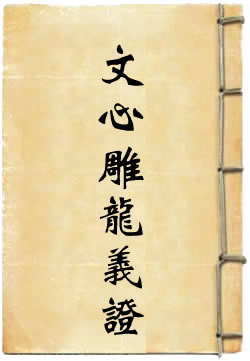 文心雕龍義證